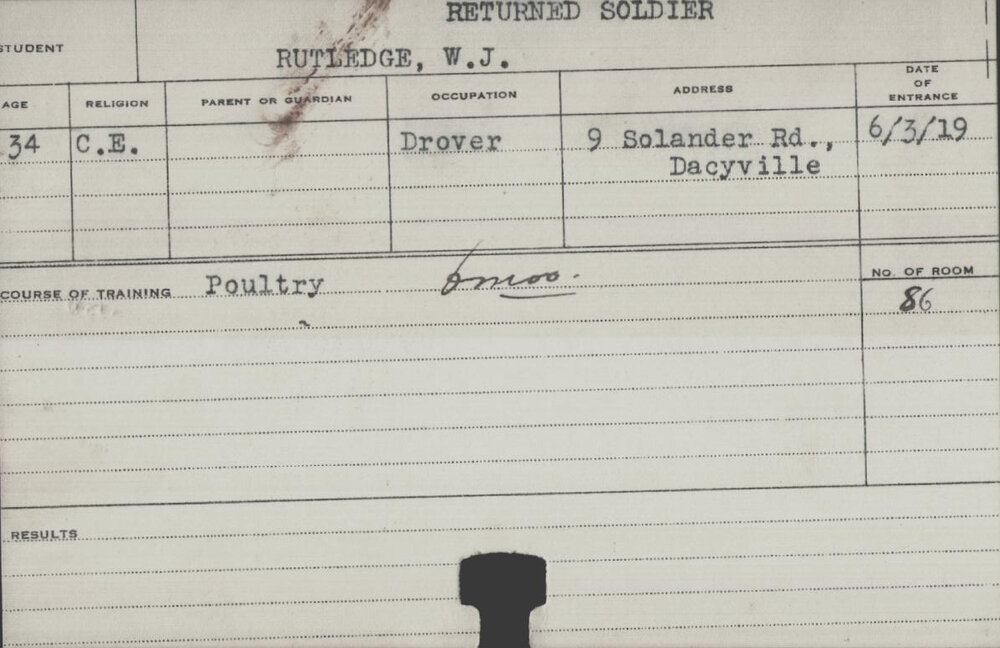 RETURNED SOLDIER
STUDENT
RUTLEDGE, W.J.
AGE RELIGION PARENT OR GUARDIAN OCCUPATION ADDRESS DATE OF ENTRANCE
34 C.E. Drover 9 Solander Rd., 6/3/19
Dacyville
COURSE OF TRAINING Poultry 6 mos. NO. OF ROOM
86
RESULTS